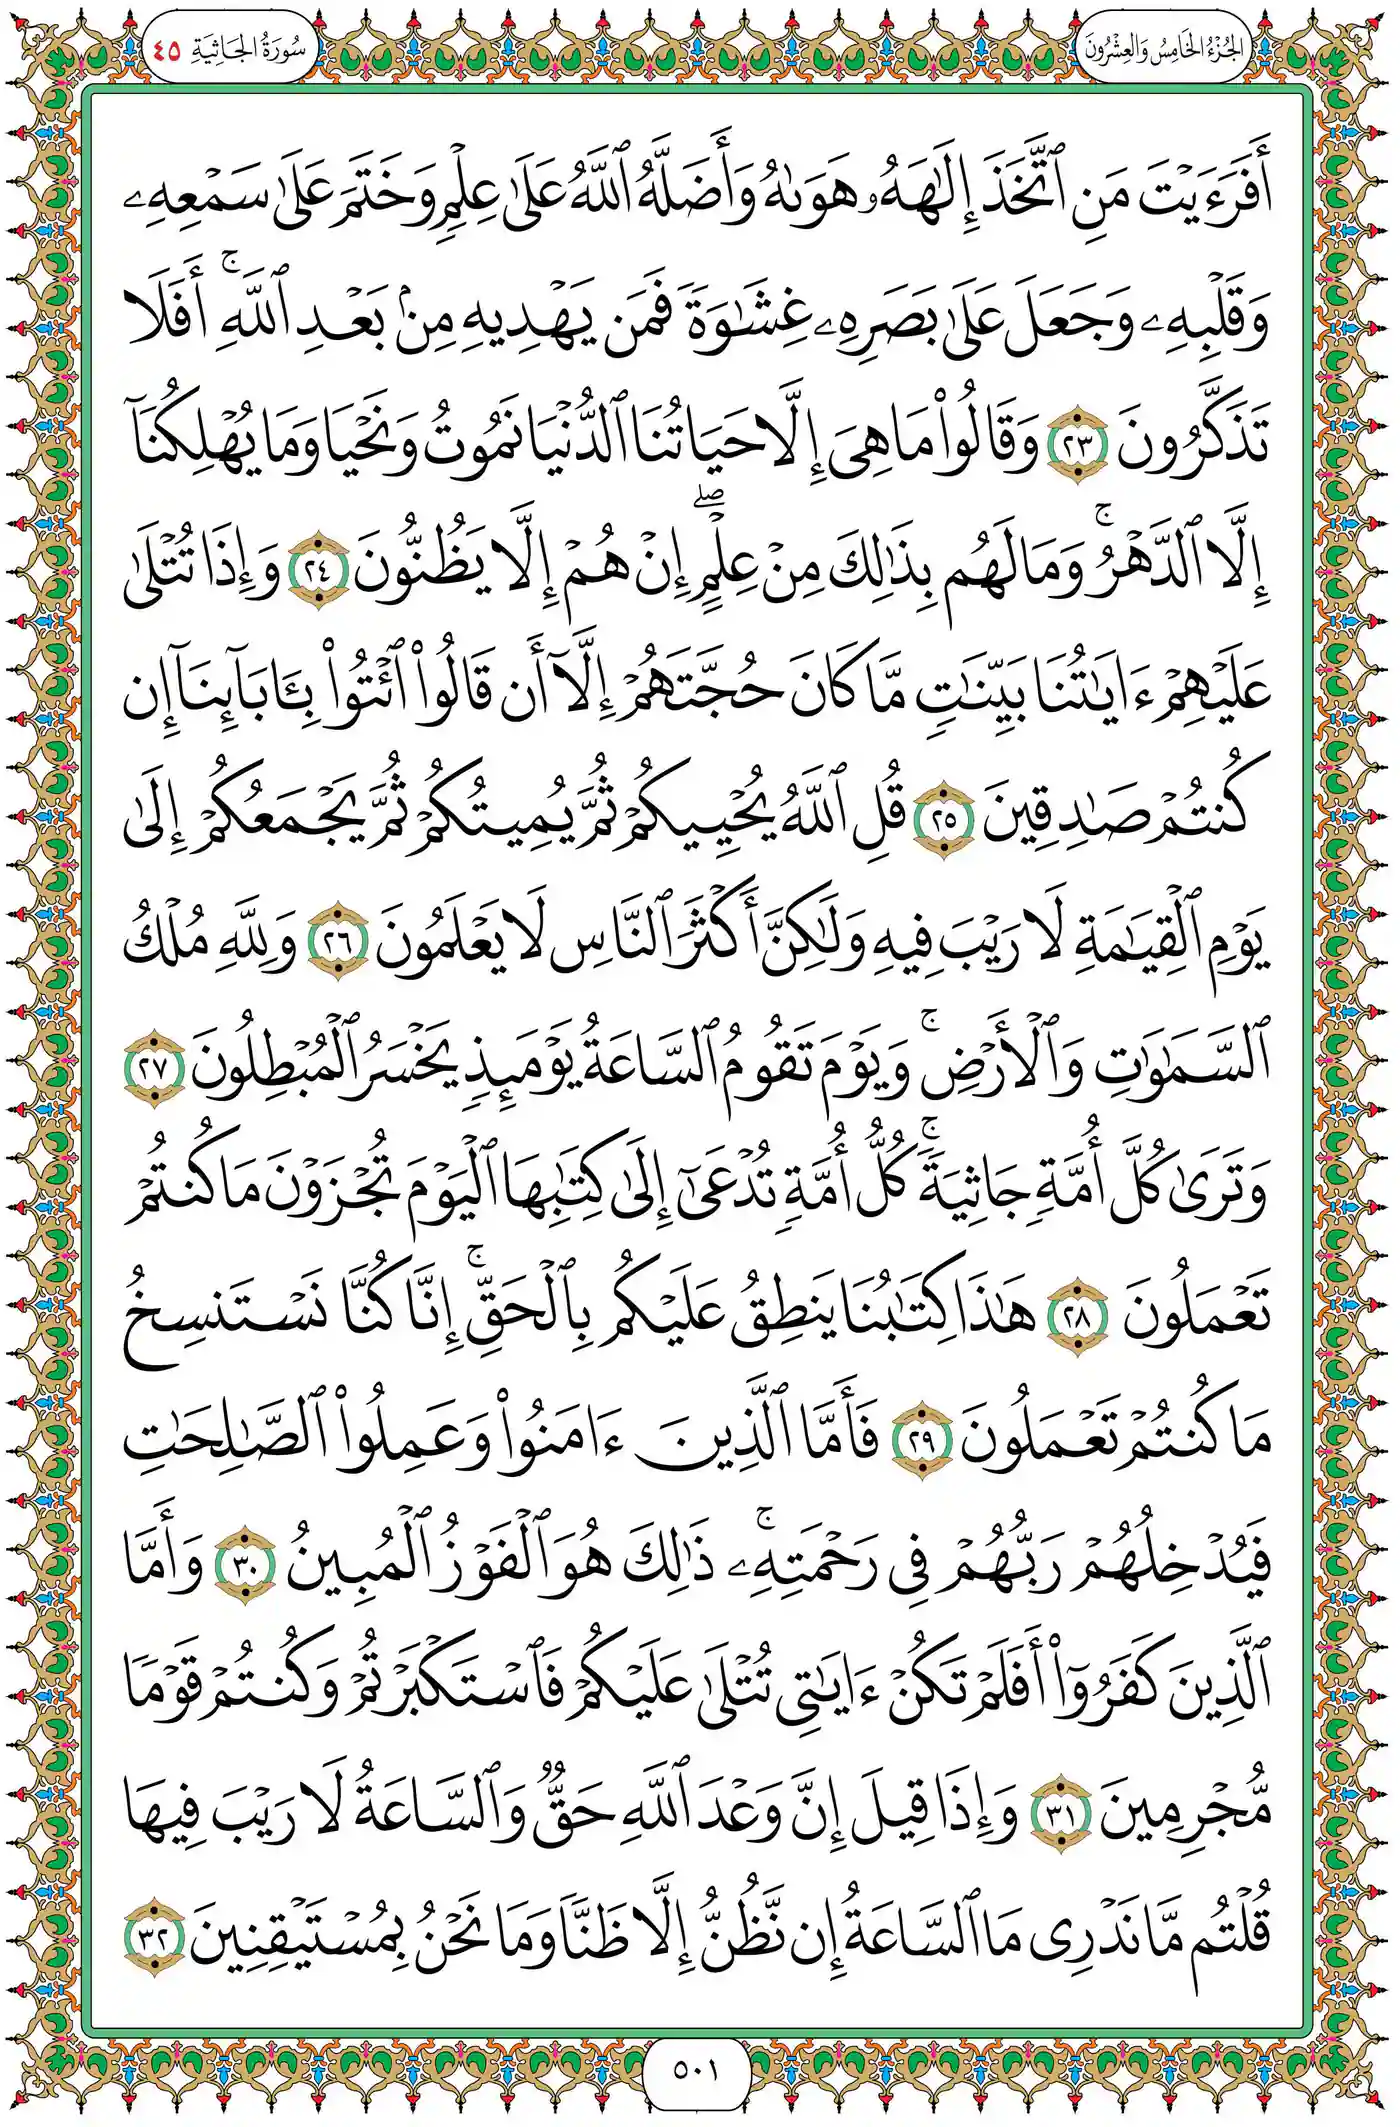 الجُزْءُ الخَامِسُ وَالعِشْرُونَ
سُورَةُ الجَاثِيَةِ ٤٥
أَفَرَءَيۡتَ مَنِ ٱتَّخَذَ إِلَٰهَهُۥ هَوَىٰهُ وَأَضَلَّهُ ٱللَّهُ عَلَىٰ عِلۡمٖ وَخَتَمَ عَلَىٰ سَمۡعِهِۦ
وَقَلۡبِهِۦ وَجَعَلَ عَلَىٰ بَصَرِهِۦ غِشَٰوَةٗ فَمَن يَهۡدِيهِ مِنۢ بَعۡدِ ٱللَّهِۚ أَفَلَا
تَذَكَّرُونَ ٢٣ وَقَالُواْ مَا هِيَ إِلَّا حَيَاتُنَا ٱلدُّنۡيَا نَمُوتُ وَنَحۡيَا وَمَا يُهۡلِكُنَآ
إِلَّا ٱلدَّهۡرُۚ وَمَا لَهُم بِذَٰلِكَ مِنۡ عِلۡمٍۖ إِنۡ هُمۡ إِلَّا يَظُنُّونَ ٢٤ وَإِذَا تُتۡلَىٰ
عَلَيۡهِمۡ ءَايَٰتُنَا بَيِّنَٰتٖ مَّا كَانَ حُجَّتَهُمۡ إِلَّآ أَن قَالُواْ ٱئۡتُواْ بِـَٔابَآئِنَآ إِن
كُنتُمۡ صَٰدِقِينَ ٢٥ قُلِ ٱللَّهُ يُحۡيِيكُمۡ ثُمَّ يُمِيتُكُمۡ ثُمَّ يَجۡمَعُكُمۡ إِلَىٰ
يَوۡمِ ٱلۡقِيَٰمَةِ لَا رَيۡبَ فِيهِ وَلَٰكِنَّ أَكۡثَرَ ٱلنَّاسِ لَا يَعۡلَمُونَ ٢٦ وَلِلَّهِ مُلۡكُ
ٱلسَّمَٰوَٰتِ وَٱلۡأَرۡضِۚ وَيَوۡمَ تَقُومُ ٱلسَّاعَةُ يَوۡمَئِذٖ يَخۡسَرُ ٱلۡمُبۡطِلُونَ ٢٧
وَتَرَىٰ كُلَّ أُمَّةٖ جَاثِيَةٗۚ كُلُّ أُمَّةٖ تُدۡعَىٰٓ إِلَىٰ كِتَٰبِهَا ٱلۡيَوۡمَ تُجۡزَوۡنَ مَا كُنتُمۡ
تَعۡمَلُونَ ٢٨ هَٰذَا كِتَٰبُنَا يَنطِقُ عَلَيۡكُم بِٱلۡحَقِّۚ إِنَّا كُنَّا نَسۡتَنسِخُ
مَا كُنتُمۡ تَعۡمَلُونَ ٢٩ فَأَمَّا ٱلَّذِينَ ءَامَنُواْ وَعَمِلُواْ ٱلصَّٰلِحَٰتِ
فَيُدۡخِلُهُمۡ رَبُّهُمۡ فِي رَحۡمَتِهِۦۚ ذَٰلِكَ هُوَ ٱلۡفَوۡزُ ٱلۡمُبِينُ ٣٠ وَأَمَّا
ٱلَّذِينَ كَفَرُوٓاْ أَفَلَمۡ تَكُنۡ ءَايَٰتِي تُتۡلَىٰ عَلَيۡكُمۡ فَٱسۡتَكۡبَرۡتُمۡ وَكُنتُمۡ قَوۡمٗا
مُّجۡرِمِينَ ٣١ وَإِذَا قِيلَ إِنَّ وَعۡدَ ٱللَّهِ حَقّٞ وَٱلسَّاعَةُ لَا رَيۡبَ فِيهَا
قُلۡتُم مَّا نَدۡرِي مَا ٱلسَّاعَةُ إِن نَّظُنُّ إِلَّا ظَنّٗا وَمَا نَحۡنُ بِمُسۡتَيۡقِنِينَ ٣٢
٥٠١